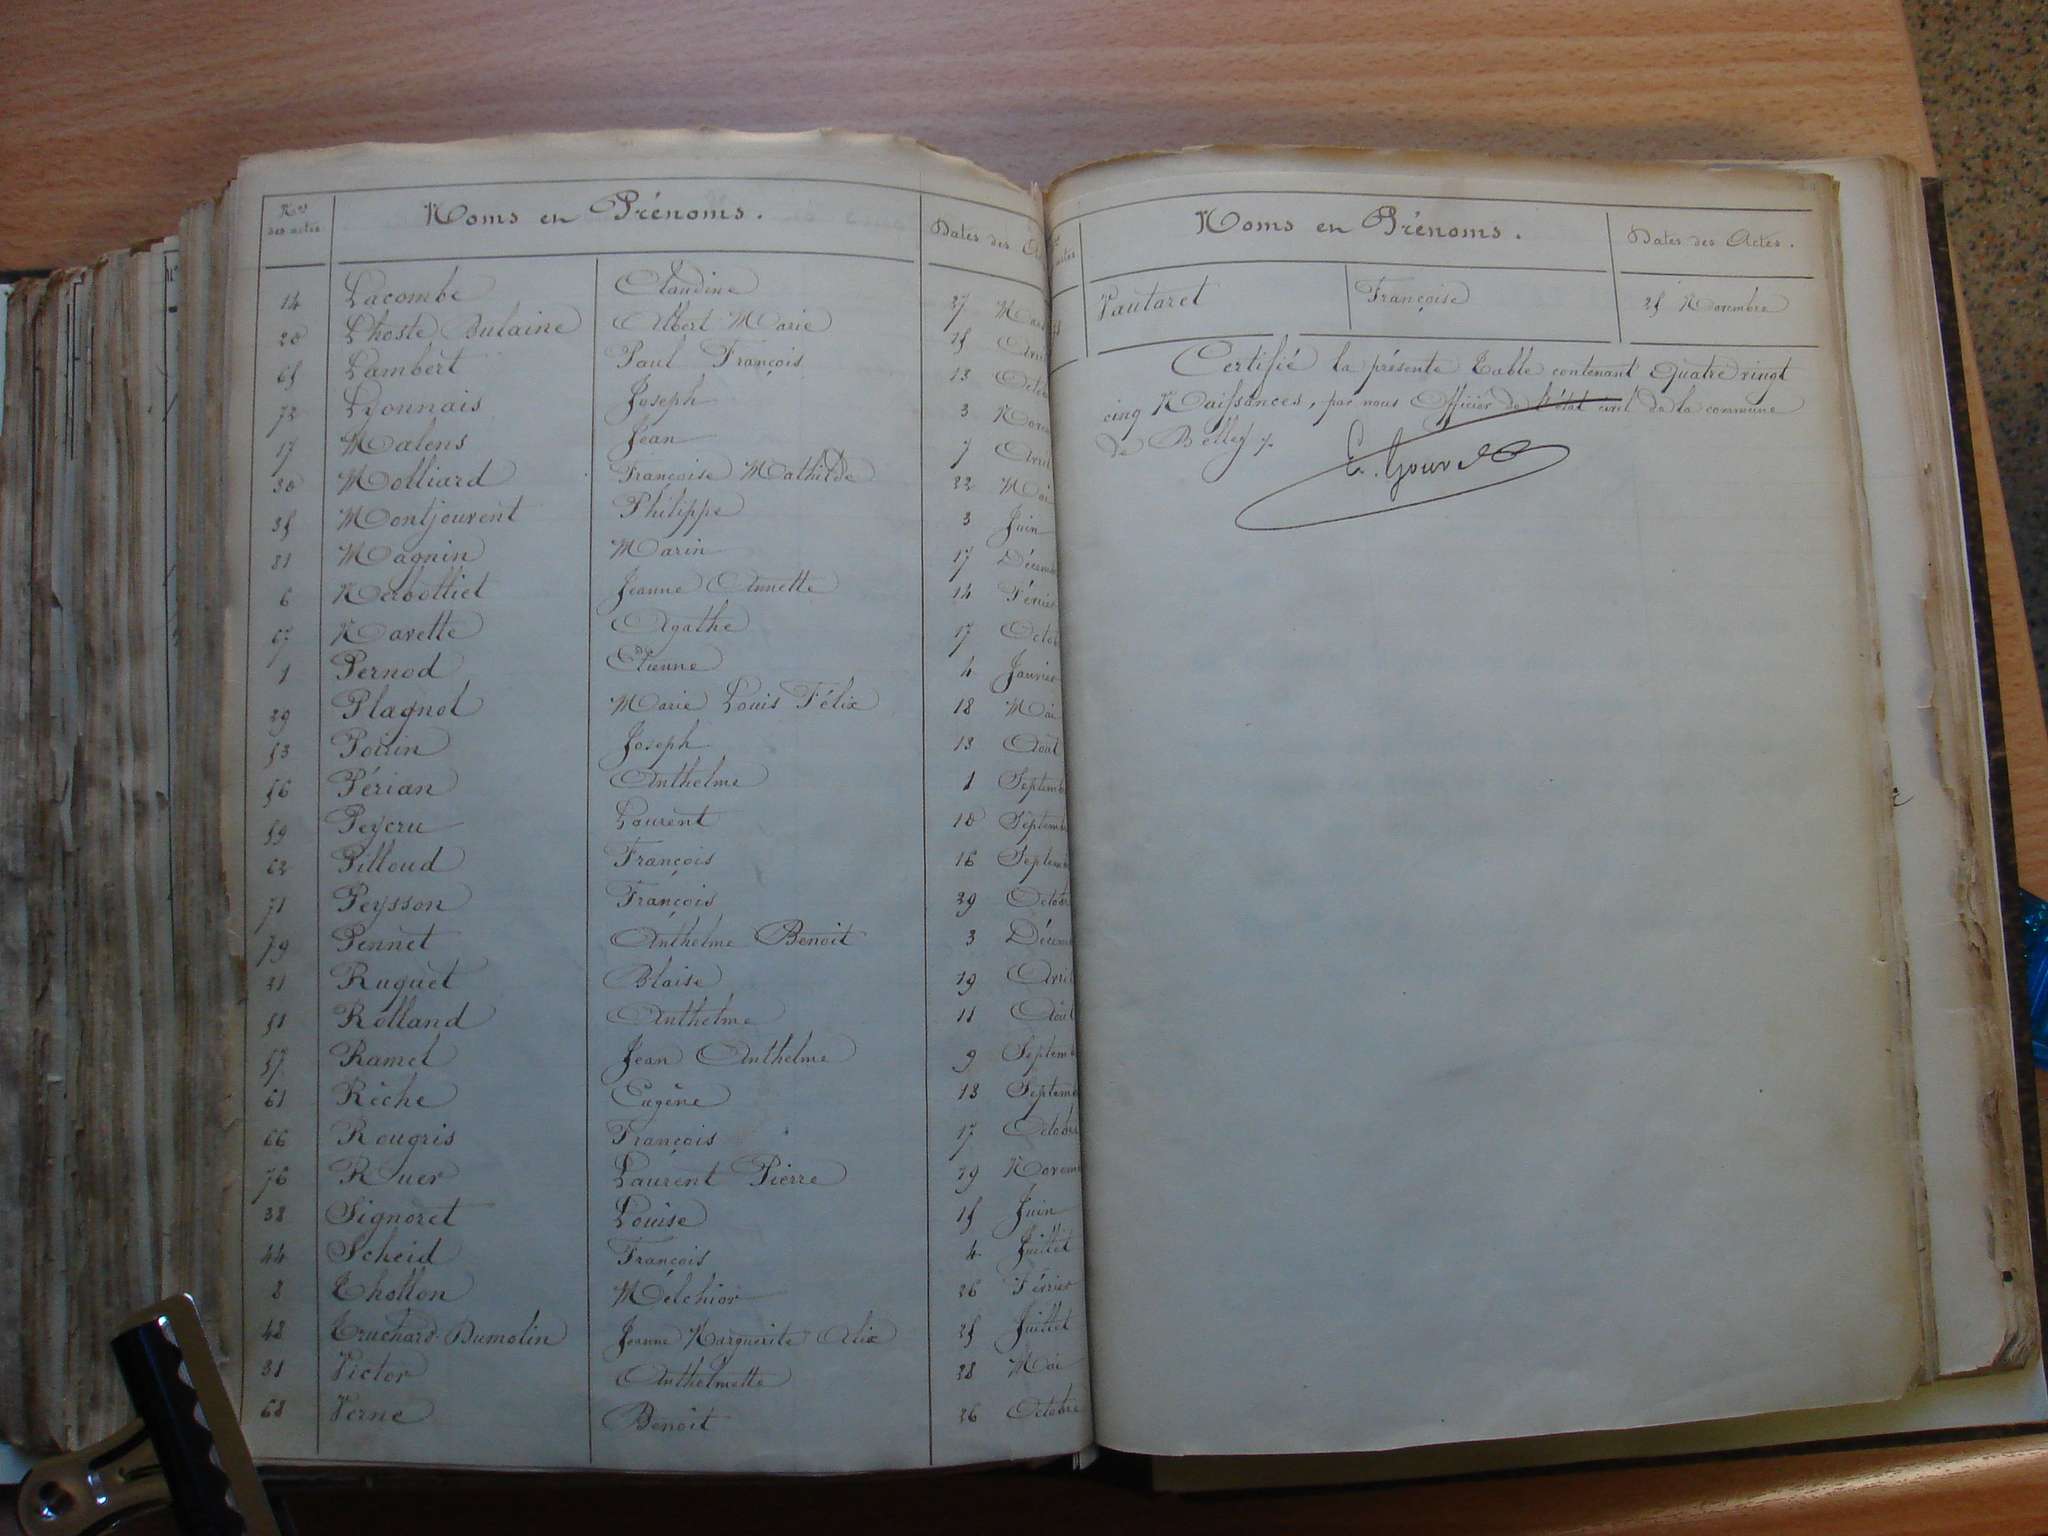 Nos des actes Noms en Prénoms. Dates des
14 Lacombe Claudine 27
20 Lhoste Bulaine Albert Marie 15
65 Lambert Paul François 13
72 Lyonnais Joseph 3
17 Malens Jean 7 Avril
30 Molliard Françoise Mathilde 22 Mai
35 Montjouvent Philippe 3 Juin
81 Magnin Marin 17
6 Nerbolliet Jeanne Annette 14 Février
67 Navette Agathe 17
1 Pernod Etienne 4 Janvier
29 Plagnol Marie Louis Félix 18 Mai
53 Joseph 13 Août
56 Périan Anthelme 1
59 Peycru Laurent 10
62 Pilloud François 16
71 Peysson François 29
79 Pennet Anthelme Benoit 3
21 Ruguet Blaise 19 Avril
51 Rolland Anthelme 11 Août
57 Ramel Jean Anthelme 9
61 Riche Eugène 13
66 Rougris François 17
76 Ruer Laurent Pierre 19
38 Signoret Louise 15 Juin
44 Scheid François 4 Juillet
8 Thollon Melchior 26 Février
48 Truchard Dumolin Jeanne Marguerite Alix 25 Juillet
31 Victor Anthelmette 28 Mai
68 Verne Benoit 26 Octobre
Noms en Prénoms. Dates des Actes.
Vautaret Françoise 25 Novembre
Certifié la présente Table contenant Quatre vingt
cinq Naissances, par nous Officier de l'état civil de la commune
de Belley